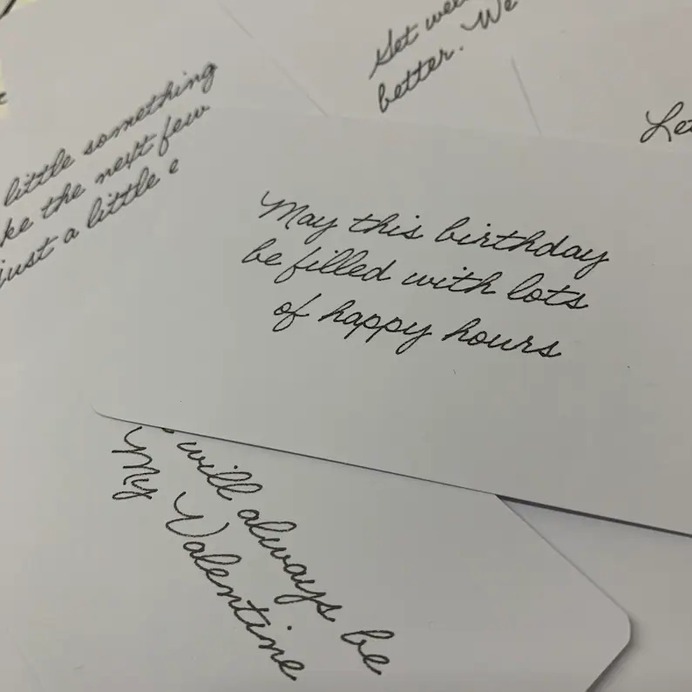 Get well
better. We
Let
little something
ke the next few
just a little e
May this birthday
be filled with lots
of happy hours
will always be
My Valentine